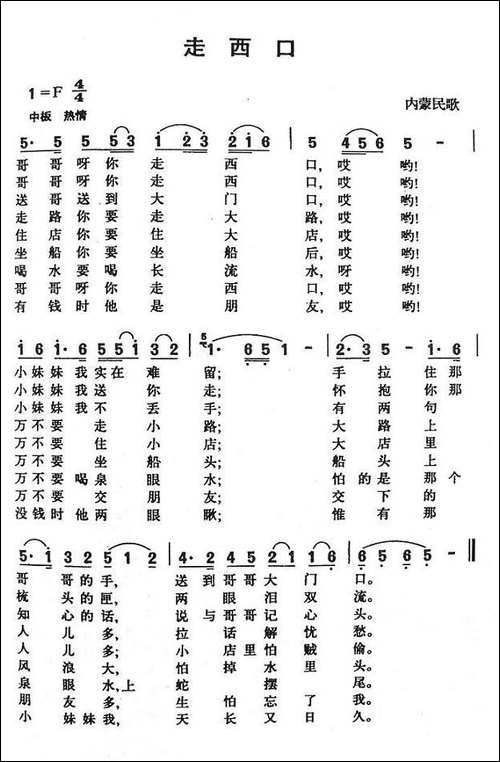 走西口
1=F 4/4
中板 热情
内蒙民歌
5· 5 5 5 3 1 2·3 2·1 6 | 5 4 5 6 5 - |
哥哥呀你走西口,哎哟!
哥哥呀你走西口,哎哟!
送哥送到大门口,哎哟!
走路你要走大路,哎哟!
住店你要住大店,哎哟!
坐船你要坐船后,哎哟!
喝水要喝长流水,呀哟!
哥哥呀你走西口,哎哟!
有钱时他是朋友,哎哟!
1 6 1· 6 5 5 1 3 2 | 5 1· 6 5 1 - | 2·3 5 - 1·6 |
小妹妹我实在难留;手拉住那
小妹妹我送你走;怀抱你那
小妹妹我不丢手;有两句
万不要走小路;大路上
万不要住小店;大店里
万不要坐船头;船头上
万不要喝泉眼水;怕的是那个
万不要交朋友;交下的
没钱时他两眼瞅;惟有那
5·1 3 2 5 1 2 | 4· 2 4 5 2 1 1 6 | 6 5 6 5 - ‖
哥哥的手,送到哥哥大门口。
梳头的匣,两眼泪双流。
知心的话,说与哥哥记心头。
人儿多,拉话解忧愁。
人儿多;小店里怕贼偷。
风浪大,怕掉水里头。
泉眼水上蛇摆尾。
朋友多,生怕忘了我。
小妹妹我,天长又日久。